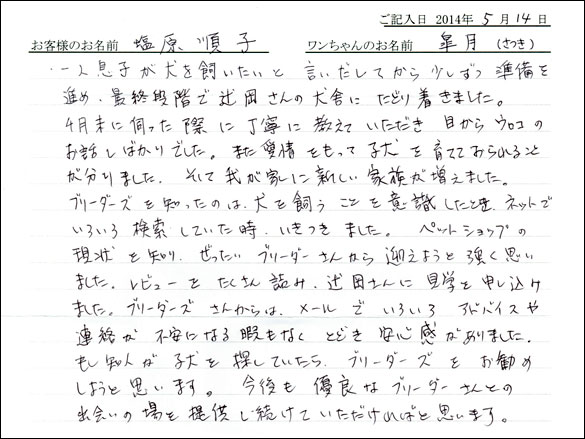 ご記入日 2014年 5月14日
お客様のお名前 塩原 順子 ワンちゃんのお名前 皐月(さつき)
・一人息子が犬を飼いたいと言いだしてから少しずつ準備を
進め、最終段階で辻岡さんの犬舎にたどり着きました。
4月末に伺った際に丁寧に教えていただき目からウロコの
お話しばかりでした。また愛情をもって子犬を育てておられること
が分りました。そして我が家に新しい家族が増えました。
ブリーダーズを知ったのは、犬を飼うことを意識したと、ネットで
いろいろ検索していた時、いきつきました。ペットショップの
現状を知り、ぜったいブリーダーさんから迎えようと強く思い
ました。レビューをたくさん読み、辻岡さんに見学を申し込み
ました。ブリーダーズさんからは、メールでいろいろアドバイスや
連絡が不安になる暇もなくとどき安心感がありました。
もし知人が子犬を探していたら、ブリーダーズをお勧め
しようと思います。今後も優良なブリーダーさんとの
出会いの場を提供し続けていただければと思います。